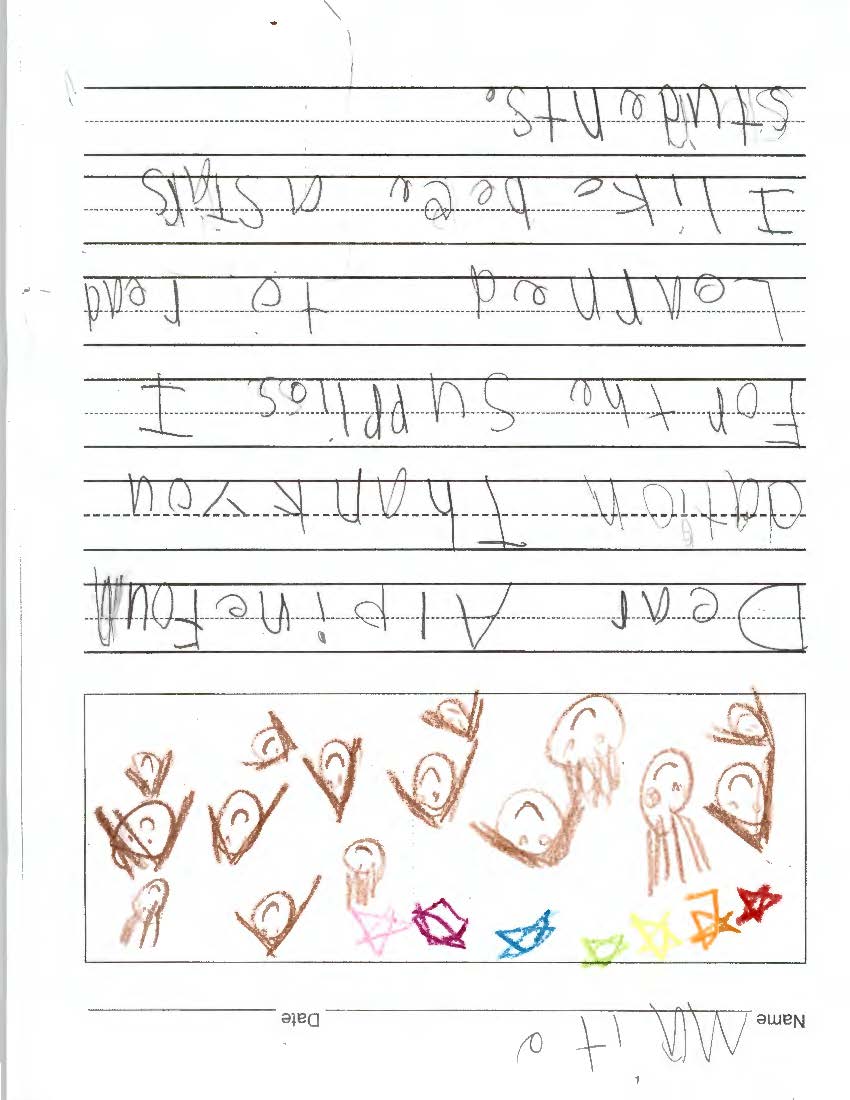 Name Maite Date
Dear Alpine Foun
dation Thank you
For the supplies I
Learned to read
I like a STARS
students.